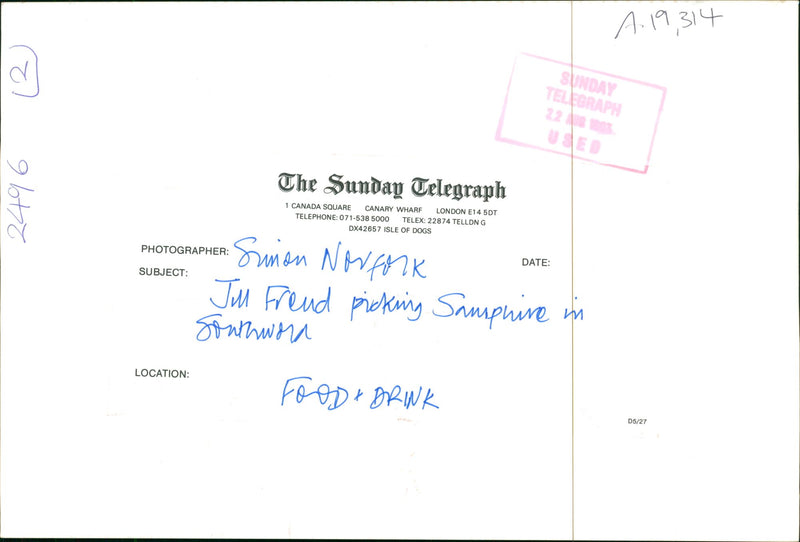 A.19,314
2496 (2)
SUNDAY
TELEGRAPH
22 AUG 1993
USED
The Sunday Telegraph
1 CANADA SQUARE CANARY WHARF LONDON E14 5DT
TELEPHONE: 071-538 5000 TELEX: 22874 TELLDN G
DX42657 ISLE OF DOGS
PHOTOGRAPHER: Simon Norfolk
DATE:
SUBJECT:
Jill Freud picking Samphire in
Southwold
LOCATION:
FOOD + DRINK
D5/27